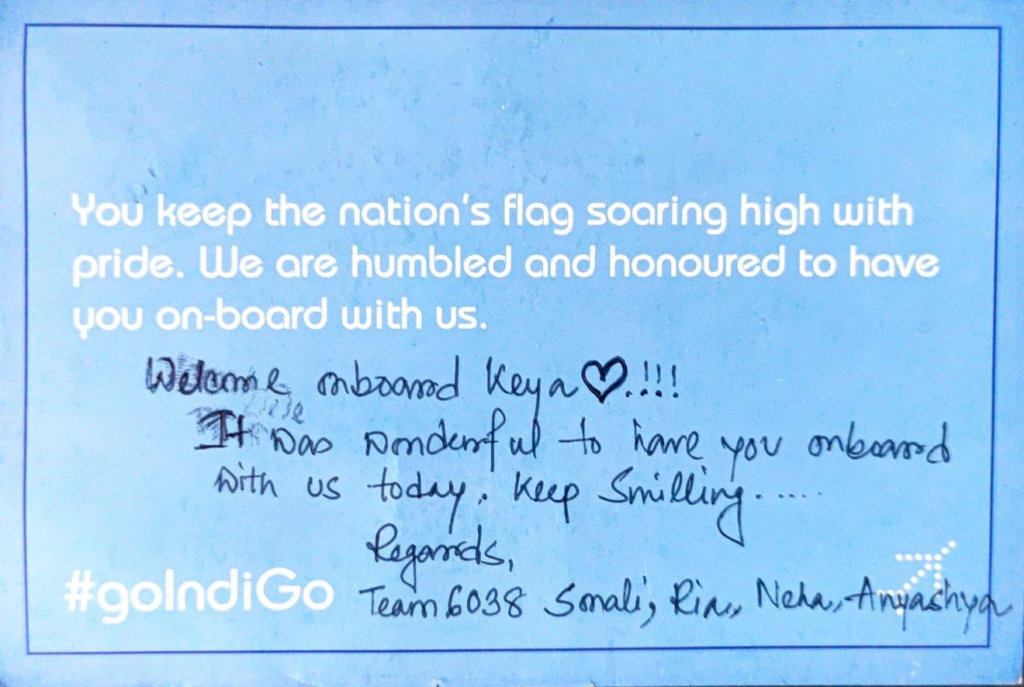 You keep the nation's flag soaring high with
pride. We are humbled and honoured to have
you on-board with us.
Welcome onboard Keya ♡.!!!
It was wonderful to have you onboard
with us today. Keep Smilling.....
Regards,
#goIndiGo Team 6038 Sonali, Ria, Neha, Anyashya